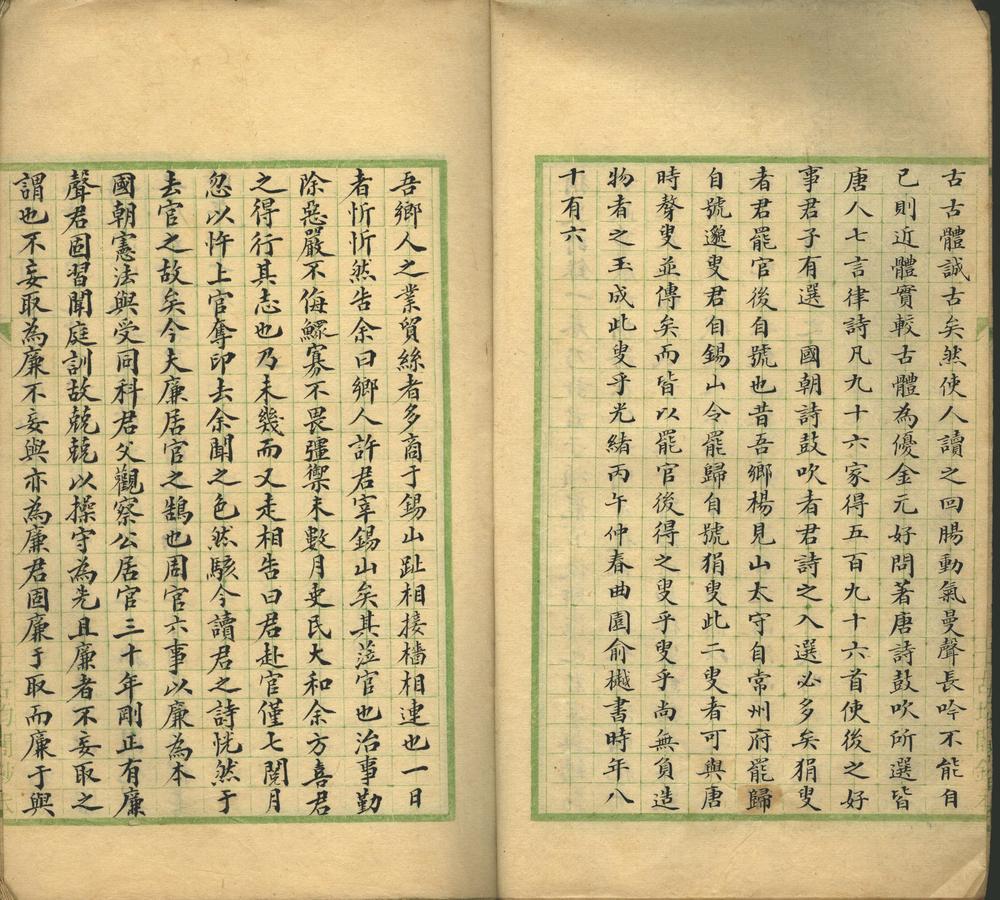 古古體誠古矣然使人讀之回腸動氣曼聲長吟不能自
已則近體實較古體為優金元好問著唐詩鼓吹所選皆
唐人七言律詩凡九十六家得五百九十六首使後之好
事君子有選 國朝詩鼓吹者君詩之入選必多矣狷叟
者君罷官後自號也昔吾鄉楊見山太守自常州府罷歸
自號邈叟君自錫山令罷歸自號狷叟此二叟者可與唐
時聱叟並傳矣而皆以罷官後得之叟乎叟乎尚無負造
物者之玉成此叟乎光緒丙午仲春曲園俞樾書時年八
十有六
吾鄉人之業貿絲者多商于錫山趾相接檣相連也一日
者忻忻然告余曰鄉人許君宰錫山矣其蒞官也治事勤
除惡嚴不侮鰥寡不畏彊禦未數月吏民大和余方喜君
之得行其志也乃未幾而又走相告曰君赴官僅七閱月
忽以忤上官奪印去余聞之色然駭今讀君之詩恍然于
去官之故矣今夫廉居官之鵠也周官六事以廉為本
國朝憲法與受同科君父觀察公居官三十年剛正有廉
聲君固習聞庭訓故兢兢以操守為先且廉者不妄取之
謂也不妄取為廉不妄與亦為廉君固廉于取而廉于與